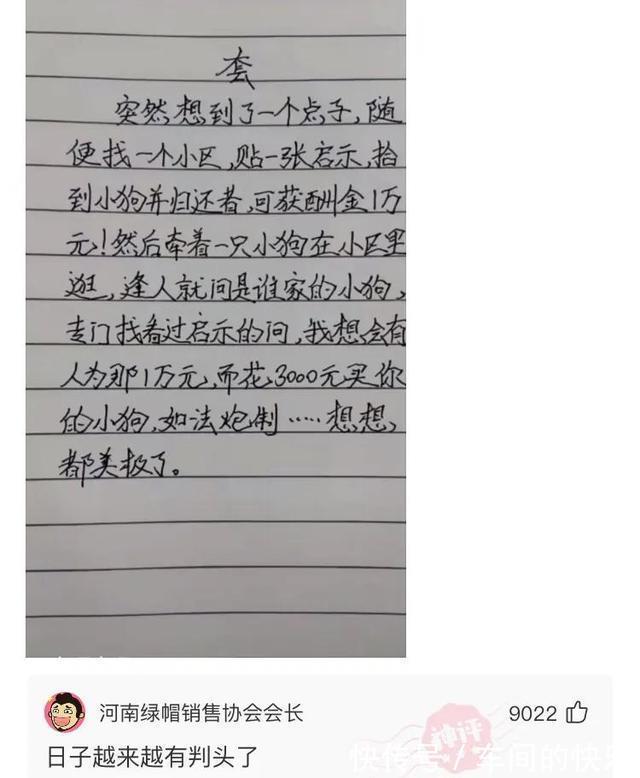 套
突然想到了一个点子，随
便找一个小区，贴一张启示，拾
到小狗并归还者，可获酬金1万
元！然后牵着一只小狗在小区里
逛，逢人就问是谁家的小狗，
专门找看过启示的问，我想会有
人为那1万元，而花3000元买你
的小狗，如法炮制……想想，
都美极了。
河南绿帽销售协会会长
9022
神评
日子越来越有判头了
快传号／车间的快乐